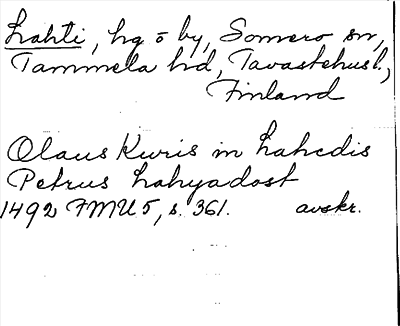 Lahti, hg o by, Somero sn,
Tammela hd, Tavastehus l.,
Finland
Olaus Kuris in Lahedis
Petrus Lahyadost
1492 FMU 5, s. 361. avskr.